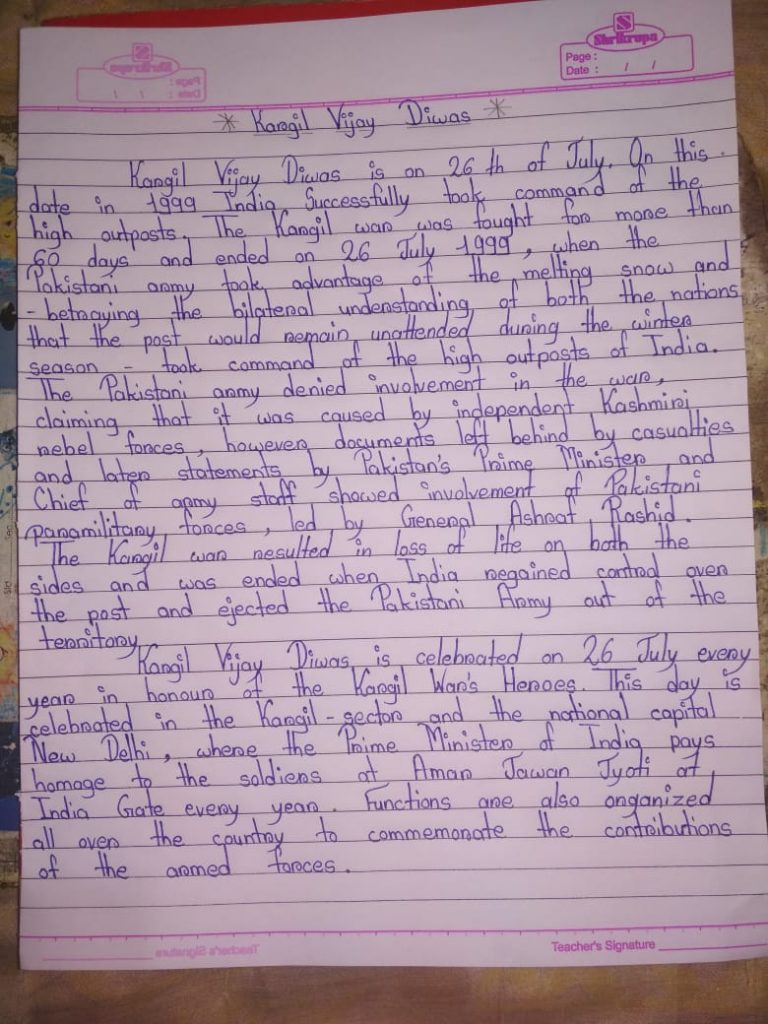 Shrikrupa
Page :
Date : / /
* Kargil Vijay Diwas *
Kargil Vijay Diwas is on 26 th of July. On this
date in 1999 India Successfully took command of the
high outposts. The Kargil war was fought for more than
60 days and ended on 26 July 1999, when the
Pakistani army took advantage of the melting snow and
- betraying the bilateral understanding of both the nations
that the post would remain unattended during the winter
season - took command of the high outposts of India.
The Pakistani army denied involvement in the war,
claiming that it was caused by independent Kashmiri
rebel forces, however documents left behind by casualties
and later statements by Pakistan's Prime Minister and
Chief of army staff showed involvement of Pakistani
paramilitary forces, led by General Ashraf Rashid.
The Kargil war resulted in loss of life on both the
sides and was ended when India regained control over
the post and ejected the Pakistani Army out of the
territory.
Kargil Vijay Diwas is celebrated on 26 July every
year in honour of the Kargil War's Heroes. This day is
celebrated in the Kargil - sector and the national capital
New Delhi, where the Prime Minister of India pays
homage to the soldiers at Amar Jawan Jyoti at
India Gate every year. Functions are also organized
all over the country to commemorate the contributions
of the armed forces.
Teacher's Signature